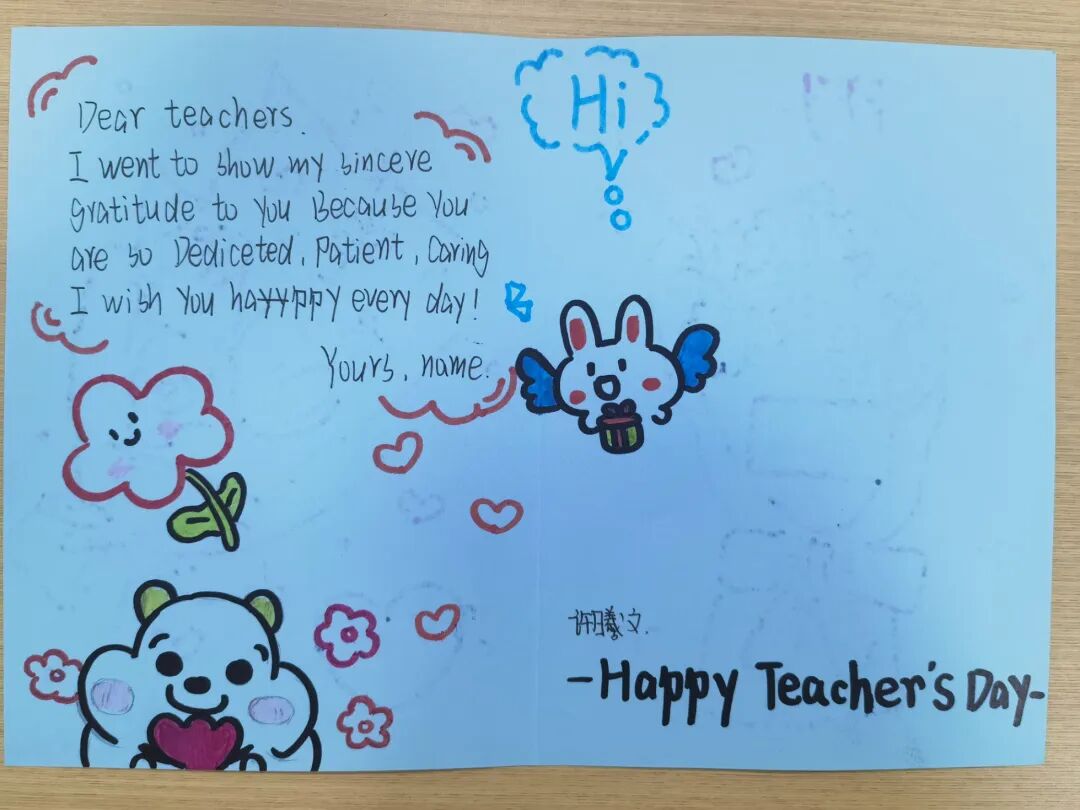 Dear teachers.
I went to show my sincere
gratitude to you Because you
are so Dediceted, Patient, Caring
I wish you hayyppy every day!
Yours, name.
Hi
-Happy Teacher's Day-